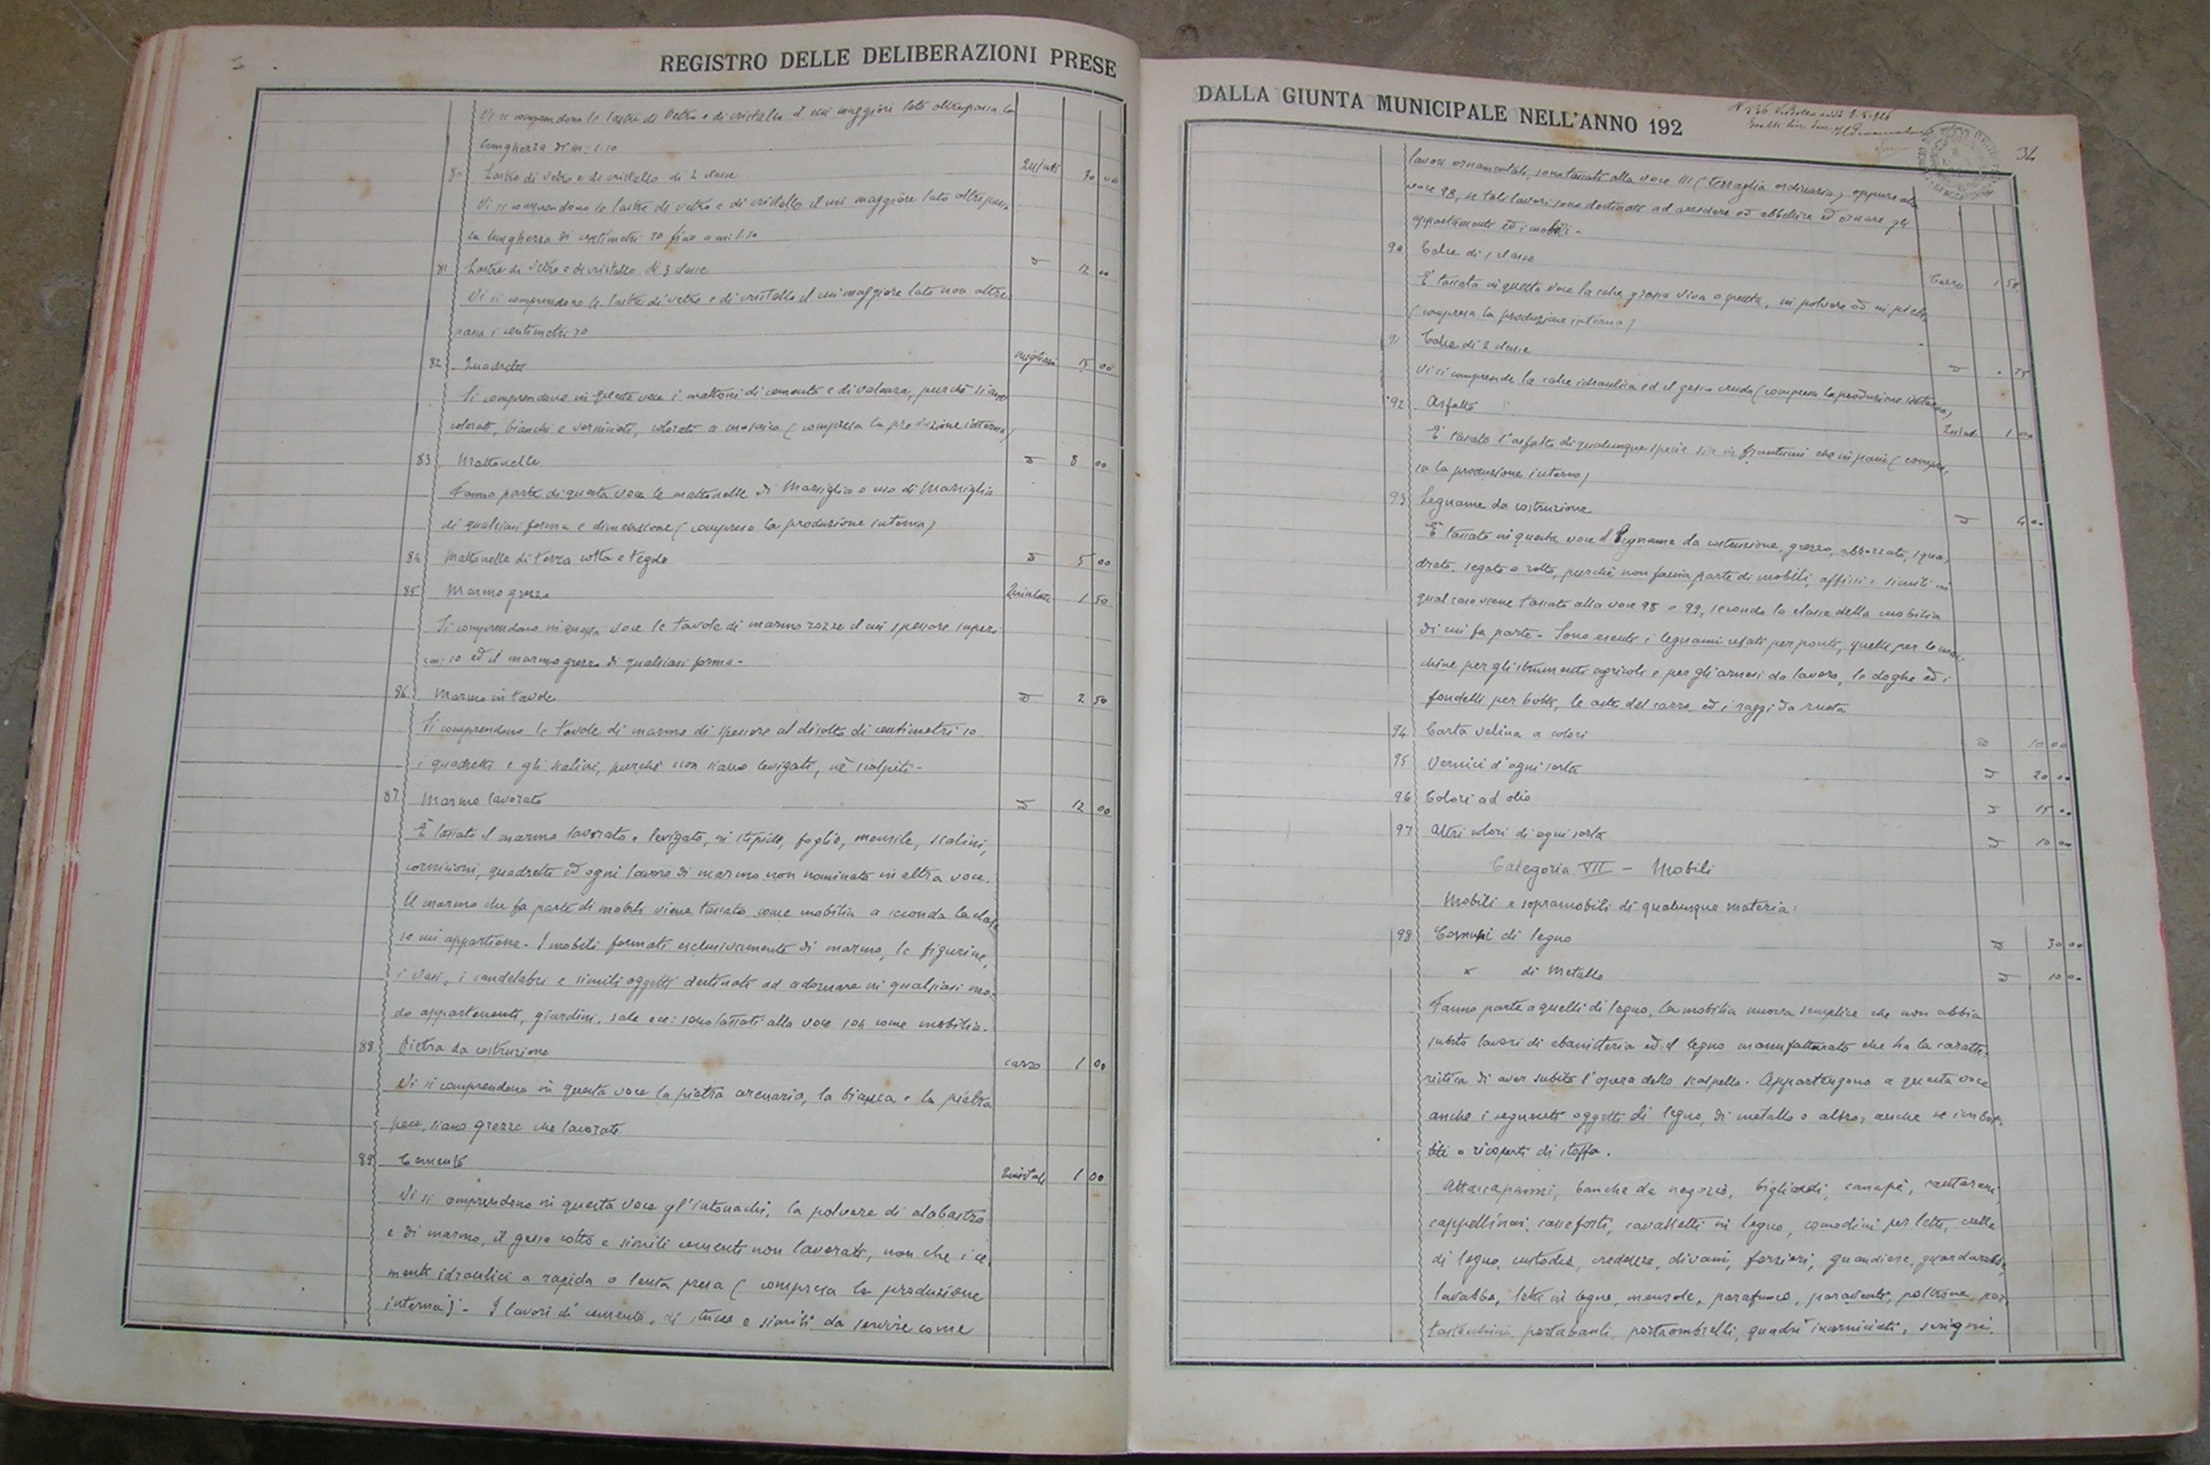 REGISTRO DELLE DELIBERAZIONI PRESE
Vi si comprendono le lastre di vetro e di cristallo il cui maggiore lato oltrepassa la
lunghezza di m: 1.10
80 Lastre di vetro e di cristallo di 2 classe Quintale 00
Vi si comprendono le lastre di vetro e di cristallo il cui maggiore lato oltrepassa
la lunghezza di centimetri 70 fino a m: 1.10
81 Lastre di vetro e di cristallo di 3 classe 12 00
Vi si comprendono le lastre di vetro e di cristallo il cui maggiore lato non oltre
passa i centimetri 70
82 migliaio 15 00
Si comprendono in questa voce i mattoni di cemento e di purchè siano
colorati, bianchi e verniciati, colorati a mosaico (compresa la produzione interna)
83 Mattonelle 8 00
Fanno parte di questa voce le mattonelle di Marsiglia o uso di Marsiglia
di qualsiasi forma e dimensione (compresa la produzione interna)
84 Mattonelle di terra cotta e tegole 5 00
85 Marmo grezzo Quintale 1 50
Si comprendono in questa voce le tavole di marmo rozze il cui spessore superi
cm: 10 ed il marmo grezzo di qualsiasi forma -
86 Marmo in tavole 2 50
Si comprendono le tavole di marmo di spessore al disotto di centimetri 10
i quadretti e gli scalini, purchè non siano levigati, nè scolpiti -
87 Marmo lavorato 12 00
È tassato il marmo lavorato e levigato, in stipiti, soglie, mensile, scalini,
cornicioni, quadretti ed ogni lavoro di marmo non nominato in altra voce.
Il marmo che fa parte di mobili viene tassato come mobilia a seconda la clas
se cui appartiene. I mobili formati esclusivamente di marmo, le figurine,
i vasi, i candelabri e simili oggetti destinati ad adornare in qualsiasi mo-
do appartamenti, giardini, sale ecc: sono tassati alla voce 104 come mobilia.
88 Pietra da costruzione carro 1 00
Vi si comprendono in questa voce la pietra arenaria, la bianca e la pietra
pece, siano grezze che lavorate
89 Cemento Quintale 1 00
Vi si comprendono in questa voce gl'intonachi, la polvere di alabastro
e di marmo, il gesso cotto e simili cementi non lavorati, non che i ce
menti idraulici a rapida o lenta presa (compresa la produzione
interna) - I lavori di cemento, di stucco e simili da servire come
DALLA GIUNTA MUNICIPALE NELL'ANNO 192
34
lavori ornamentali, sono tassati alla voce 111 (terraglia ordinaria) oppure alla
voce 98, se tali lavori sono destinati ad arredare ed abbellire ed ornare gli
appartamenti ed i mobili -
90 Calce di 1 classe Carro 1 50
È tassata in questa voce la calce grassa viva o spenta, in polvere od in pietra
(compresa la produzione interna)
91 Calce di 2 classe 75
Vi si comprende la calce idraulica ed il gesso crudo (compresa la produzione interna)
92 Asfalto Quintale 1 00
È tassato l'asfalto di qualunque specie sia in frantumi che in pani (compre
sa la produzione interna)
93 Legname da costruzione 4 00
È tassato in questa voce il legname da costruzione, grezzo, abbozzato, squa-
drato, segato o rotto, purchè non faccia parte di mobili, affissi e simili in
qual caso viene tassato alla voce 98 o 99, secondo la classe della mobilia
di cui fa parte - Sono esenti i legnami usati per ponti, quelli per le mac-
chine per gli strumenti agricoli e per gli arnesi da lavoro, le doghe ed i
fondelli per botti, le aste del carro ed i raggi da ruota
94 Carta velina a colori 10 00
95 Vernici d'ogni sorta 20 00
96 Colori ad olio 15 00
97 Altri colori di ogni sorta 10 00
Categoria VII - Mobili
Mobili e sopramobili di qualunque materia:
98 Comuni di legno 30 00
" di Metallo 10 00
Fanno parte a quelli di legno, la mobilia nuova semplice che non abbia
subito lavori di ebanisteria ed il legno manufatturato che ha la caratte-
ristica di aver subito l'opera dello scalpello. Appartengono a questa voce
anche i seguenti oggetti di legno, di metallo o altro, anche se imbot-
titi o ricoperti di stoffa.
Attaccapanni, banche da negozio, bigliardi, canapè, canterani
cappelliniai, casseforti, cavalletti in legno, comodini per letti, culle
di legno, custodie, credenze, divani, forzieri, guardarobe,
lavabbo, letti in legno, mensole, parafuoco, paraventi, poltrone, por-
portabauli, portaombrelli, quadri incorniciati, scrigni,